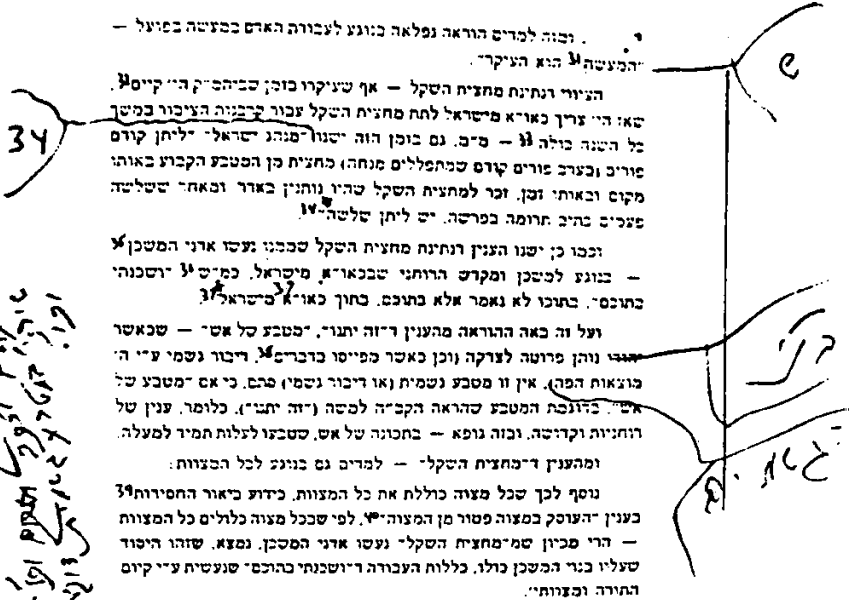 . ומזה למדים הוראה נפלאה בנוגע לעבודת האדם במעשה בפועל —
"המעשה31 הוא העיקר".
הציווי דנתינת מחצית השקל — אף שעיקרו בזמן שביהמ"ק הי' קיים32,
שאז הי' צריך כאו"א מישראל לתת מחצית השקל עבור קרבנות הציבור במשך
כל השנה כולה33 — מ"מ, גם בזמן הזה ישנו "מנהג ישראל" "ליתן קודם
פורים (בערב פורים קודם שמתפללים מנחה) מחצית מן המטבע הקבוע באותו
מקום ובאותו זמן, זכר למחצית השקל שהיו נותנין באדר ומאחר ששלשה
פעמים כתיב תרומה בפרשה, יש ליתן שלשה"34.
וכמו כן ישנו הענין דנתינת מחצית השקל שממנו נעשו אדני המשכן
— בנוגע למשכן ומקדש הרוחני שבכאו"א מישראל, כמ"ש "ושכנתי
בתוכם", בתוכו לא נאמר אלא בתוכם, בתוך כאו"א מישראל37.
ועל זה באה ההוראה מהענין ד"זה יתנו", "מטבע של אש" — שכאשר
יהודי נותן פרוטה לצדקה (וכן כאשר מפייסו בדברים38, דיבור גשמי ע"י ה'
מוצאות הפה), אין זו מטבע גשמית (או דיבור גשמי) סתם, כי אם "מטבע של
אש", בדוגמת המטבע שהראה הקב"ה למשה ("זה יתנו"), כלומר, ענין של
רוחניות וקדושה, ובזה גופא — בתכונה של אש, שטבעו לעלות תמיד למעלה.
ומהענין ד"מחצית השקל" — למדים גם בנוגע לכל המצוות:
נוסף לכך שכל מצוה כוללת את כל המצוות, כידוע ביאור החסידות39
בענין "העוסק במצוה פטור מן המצוה"40, לפי שבכל מצוה כלולים כל המצוות
— הרי מכיון שמ"מחצית השקל" נעשו אדני המשכן, נמצא, שזהו היסוד
שעליו בנוי המשכן כולו, כללות העבודה ד"ושכנתי בתוכם" שנעשית ע"י קיום
התורה ומצוותי'.
34